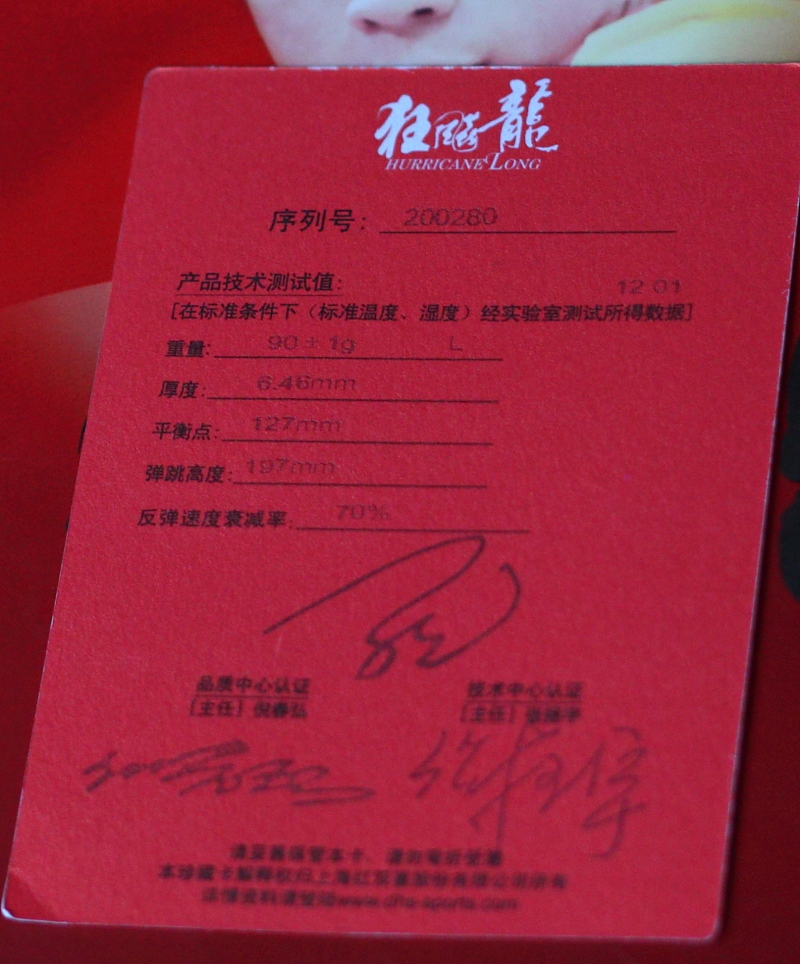 狂飚龍
HURRICANE LONG
序列号: 200280
产品技术测试值: 12 01
[在标准条件下（标准温度、湿度）经实验室测试所得数据]
重量: 90±1g L
厚度: 6.46mm
平衡点: 127mm
弹跳高度: 197mm
反弹速度衰减率: 70%
品质中心认证 技术中心认证
[主任] 倪春弘 [主任]
本珍藏卡解释权归上海红双喜股份有限公司所有
详情资料请登陆www.dhs-sports.com